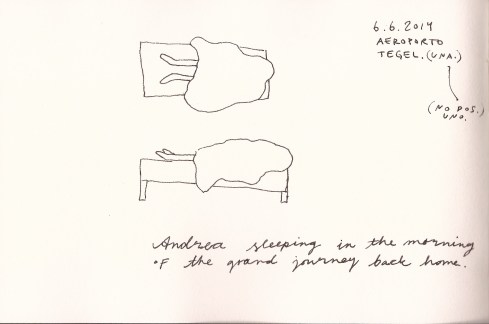 6.6.2014
AEROPORTO
TEGEL. (UNA.)
(NO POS.)
UNO.
Andrea sleeping in the morning
of the grand journey back home.